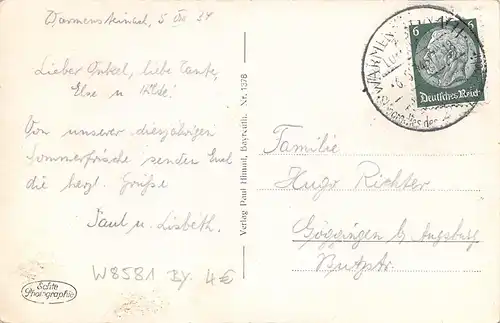 Warmensteinach, 5 VIII 34
Lieber Onkel, liebe Tante,
Else u. Hilde!
Von unserer diesjährigen
Sommerfrische senden Euch
die herzl. Grüße
Paul u. Lisbeth.
W8581 BY. 4€
Echte
Photographie
Verlag Paul Himml, Bayreuth. Nr. 1378
WARMENSTEINACH
6 6
Deutsches Reich
Familie
Hugo Richter
Göggingen b. Augsburg